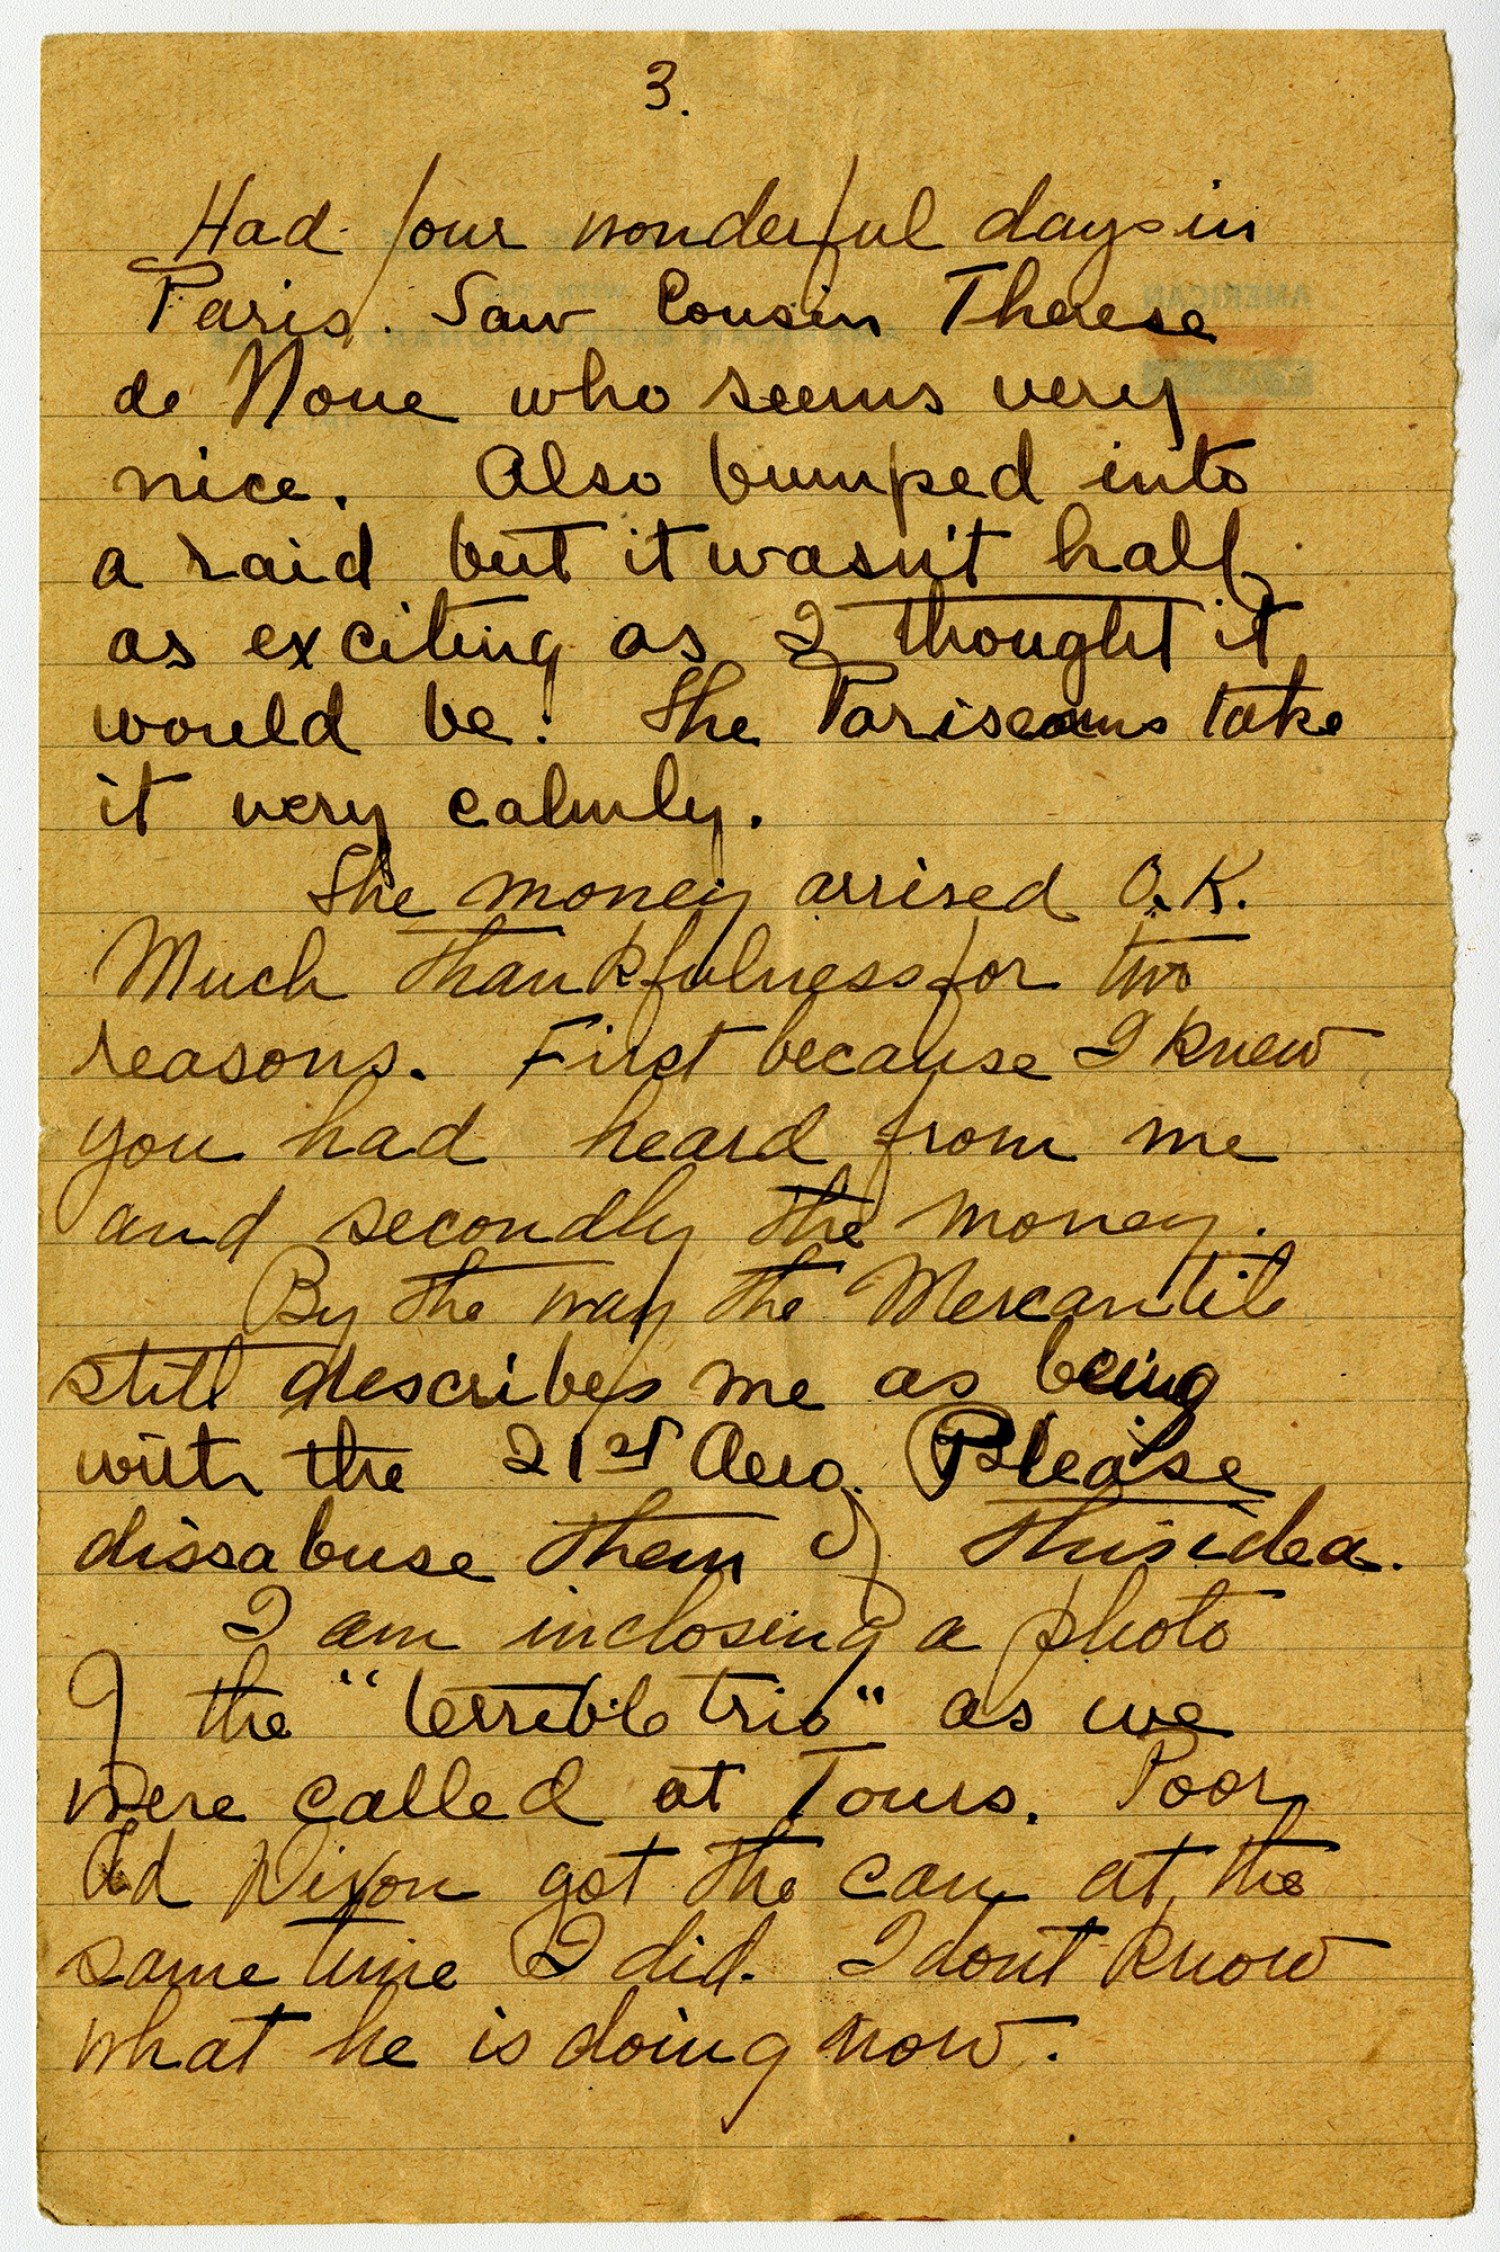 3.
Had four wonderful days in
Paris. Saw Cousin Therese
de Noue who seems very
nice. Also bumped into
a raid but it wasn't half
as exciting as I thought it
would be. The Pariseans take
it very calmly.
The money arrised O.K.
Much thankfulness for two
reasons. First because I knew
you had heard from me
and secondly the money.
By the way the Mercantile
still describes me as being
with the 21st Aero. Please
dissabuse them of this idea.
I am inclosing a photo
of the "terrible trio" as we
were called at Tours. Poor
Ed Nixon got the can at the
same time I did. I dont know
what he is doing now.
AMERICAN